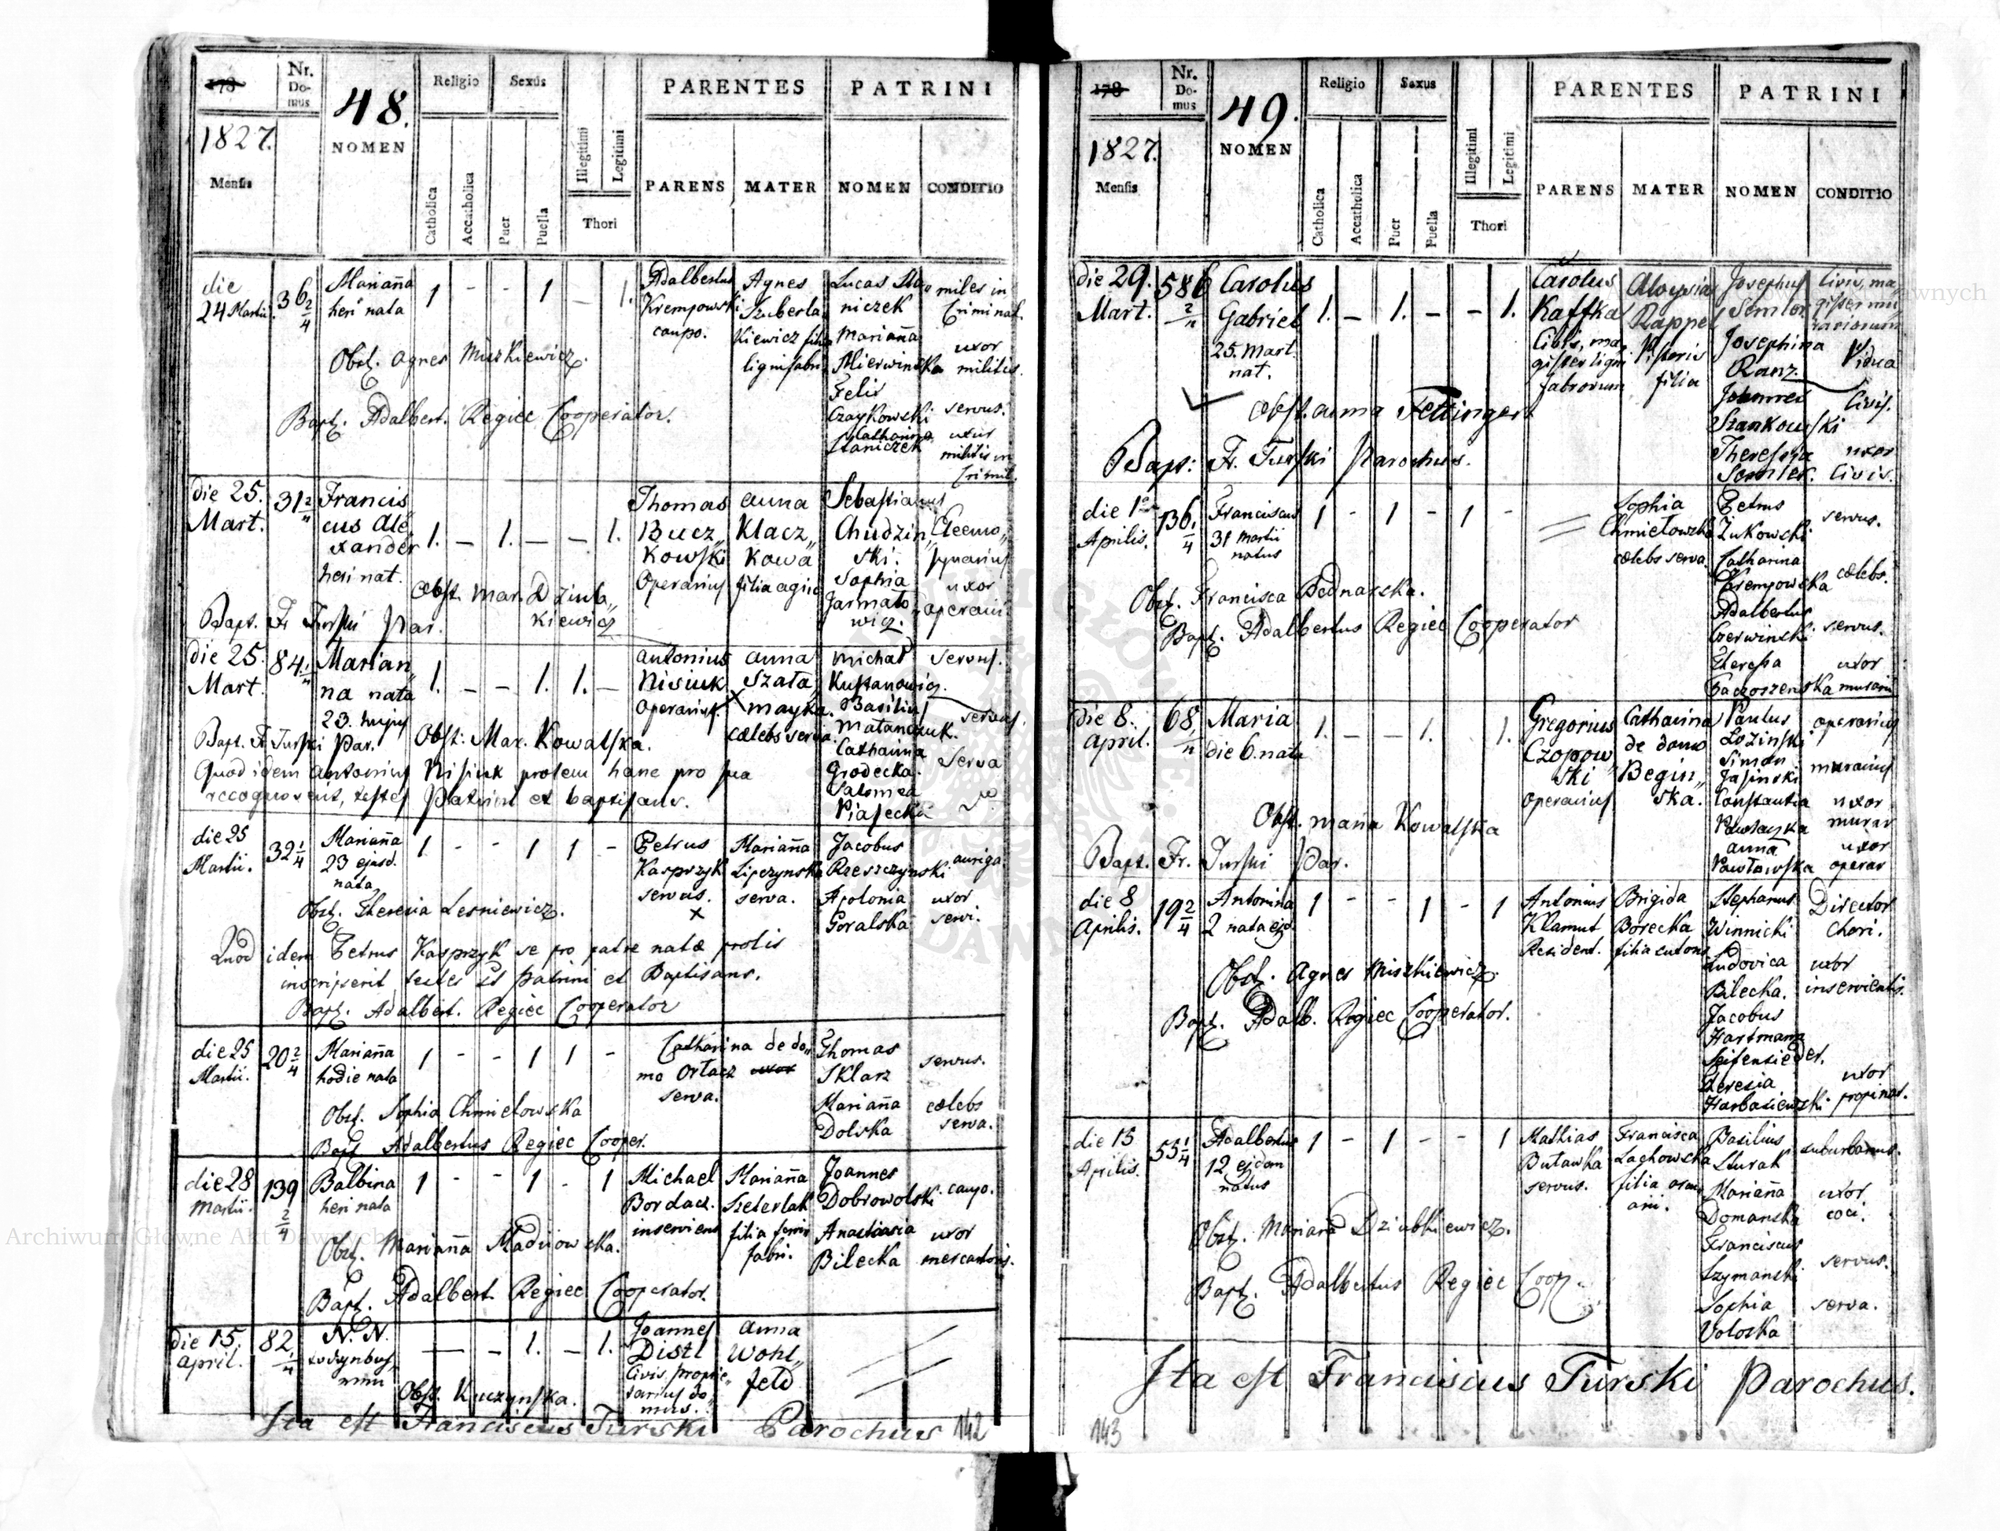 178
Nr. Domus
48.
NOMEN
Religio
Sexus
PARENTES
PATRINI
1827.
Mensis
Catholica
Accatholica
Puer
Puella
Illegitimi
Legitimi
Thori
PARENS
MATER
NOMEN
CONDITIO
die 24 Martii.
36 2/4
Marianna heri nata
1 - - 1 - 1.
Adalbertus Krempowski caupo.
Agnes
lignifabri
Lucas Staniczek
miles in Criminal.
Marianna Mierwinska
uxor militis.
Felix Czaykowski
servus.
Catharina Staniczek
uxor militis in Crimil.
Obst. Agnes Miszkiewicz.
Bapt. Adalbert. Regiec Cooperator.
die 25. Mart.
31 2/4
Franciscus Alexander heri nat.
1. - 1. - - 1.
Thomas Buczkowski Operarius
Anna Klaczkowa filia agric
Sebastianus Chudzinski.
Eleemosynarius
Sophia Jarmatowicz.
uxor operarii.
Obst. Mar. Dziubkiewicz
Bapt. Fr Turski Par.
die 25. Mart.
84 1/4
Marianna nata 23. hujus
1. - - 1. 1. -
Antonius Nisiuk Operarius.
Anna Szatamayka. cælebs serva.
Michał Kustanowicz.
servus.
Basilius Matanczuk.
servus.
Catharina Grodecka.
serva
Salomea Piasecka
Bapt. Fr Turski Par.
Obst: Mar. Kowalska.
Quod idem Antonius Nisiuk prolem hanc pro sua
recognoverit, testes Patrini et baptisans.
die 25 Martii.
32 1/4
Marianna 23 ejusd. nata
1 - - 1 1 -
Petrus Kasprzyk servus.
Marianna Lipczynska serva.
Jacobus Rzeszczynski
auriga.
Apolonia Goralska
uxor servi.
Obst. Theresia Lesniewicz.
Quod idem Petrus Kasprzyk se pro patre natæ prolis
inscripserit, testes st patrini et Baptisans.
Bapt. Adalbert. Regiec Cooperator
die 25 Martii.
20 2/4
Marianna hodie nata
1 - - 1 1 -
Catharina de domo Ortacz uxor serva.
Thomas Sklarz
servus.
Marianna Dolska
cælebs serva.
Obst. Sophia Chmielowska
Bapt Adalbertus Regiec Cooper.
die 28 Martii.
139 2/4
Balbina heri nata
1 - - 1 - 1
Michael Bordacz inserviens
Marianna Szeterlak filia ferri fabri.
Joannes Dobrowolski
caupo.
Anastasia Bilecka
uxor mercatoris.
Obst. Marianna Madijowska.
Bapt. Adalbert. Regiec Cooperator.
die 15. April.
82 1/4
N. N.
- - 1. - 1.
Joannes Distl Civis, proprietarius domus.
Anna Wohlfeld
Obst. Kuczynska.
Ita est Franciscus Turski Parochus
142
178
Nr. Domus
49.
NOMEN
Religio
Sexus
PARENTES
PATRINI
1827.
Mensis
Catholica
Accatholica
Puer
Puella
Illegitimi
Legitimi
Thori
PARENS
MATER
NOMEN
CONDITIO
die 29. Mart.
586 2/4
Carolus Gabriel 25. Mart. nat.
1. - 1. - - 1.
Carolus Kaffka Civis, magister lignifabrorum
Aloysia Kappel Pistoris filia
Josephus Semler
Civis, magister murariorum
Josephina Ranz.
Vidua
Joannes Stankowski
Civis.
Theresia Semler.
uxor Civis.
Obst. anna Fettinger
Bapt: Fr. Turski Parochus.
die 1a Aprilis.
136 1/4
Franciscus 31 Martii natus
1 - 1 - 1 -
Sophia Chmielowska cælebs serva
Petrus Zukowski
servus.
Catharina Krempowska
cælebs.
Adalbertus Czerwinski
servus.
Theressa
uxor murarii
Obst. Francisca Bednarska.
Bapt. Adalbertus Regiec Cooperator
die 8. April.
68 1/4
Maria die 6. nata
1. - - 1. 1.
Gregorius Czopowski operarius
Catharina de domo Beginska.
Paulus Lozinski
operarius
Simon Jasinski
murarius
Constantia
uxor murar
Anna Pawłowska
uxor operar
Obst. manna Kowalska
Bapt. Fr. Turski Par.
die 8 Aprilis.
19 2/4
Antonina 2 nata ejd
1 - - 1 - 1
Antonius Klamut Resident.
Brigida Borecka filia sutoris
Stephanus Winnicki
Director Chori.
Ludovica Bilecka.
uxor inservientis.
Jacobus Hartmann Seifensieder.
Theresia Harbasiewski
uxor propinat.
Obst. Agnes Miszkiewicz.
Bapt. Adalb. Regiec Cooperator.
die 15 Aprilis.
55 1/4
Adalbertus 12 ejdem natus
1 - 1 - - 1
Mathias Butawka servus.
Francisca Lachowska filia
Basilius Sturak
suburbanus.
Marianna Domanska
uxor coci.
Franciscus Szymanski
servus.
Sophia Voloska
serva.
Obst. Mariana Dziubkiewicz.
Bapt. Adalbertus Regiec Coop.
Ita est Franciscus Turski Parochus.
143
Archiwum Główne Akt Dawnych